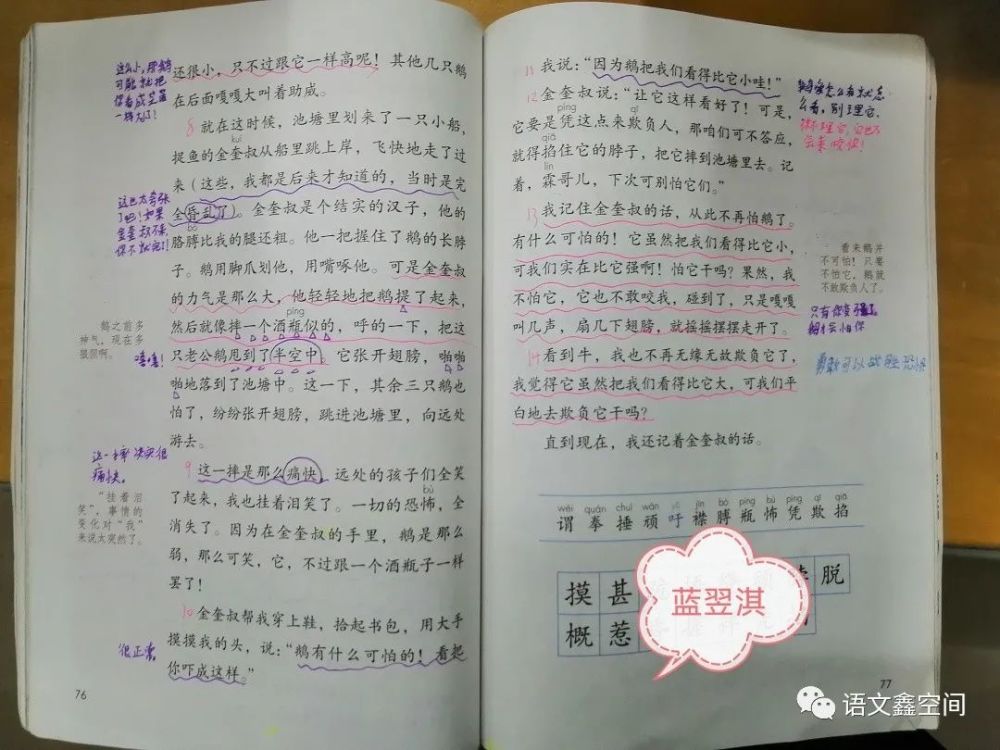 还很小，只不过跟它一样高呢！其他几只鹅
在后面嘎嘎大叫着助威。
8 就在这时候，池塘里划来了一只小船，
kuí
捉鱼的金奎叔从船里跳上岸，飞快地走了过
来（这些，我都是后来才知道的，当时是完
全昏乱了）。金奎叔是个结实的汉子，他的
bó
胳膊比我的腿还粗。他一把握住了鹅的长脖
子。鹅用脚爪划他，用嘴啄他。可是金奎叔
的力气是那么大，他轻轻地把鹅提了起来，
píng
然后就像摔一个酒瓶似的，呼的一下，把这
只老公鹅甩到了半空中。它张开翅膀，啪啪
啪地落到了池塘中。这一下，其余三只鹅也
怕了，纷纷张开翅膀，跳进池塘里，向远处
游去。
9 这一摔是那么痛快，远处的孩子们全笑
bù
了起来，我也挂着泪笑了。一切的恐怖，全
消失了。因为在金奎叔的手里，鹅是那么
弱，那么可笑，它，不过跟一个酒瓶子一样
罢了！
10 金奎叔帮我穿上鞋，拾起书包，用大手
摸摸我的头，说：“鹅有什么可怕的！看把
你吓成这样。”
这么小，那鹅
可能就把
你看成是蓝
一样大了！
这也太夸张
了吧！如果
金奎叔不来
你不就完了！
鹅之前多
神气，现在多
狼狈啊。
嘻嘻！
这一摔决实很
痛快。
“挂着泪
笑”，事情的
变化对“我”
来说太突然了。
很正常。
76
11 我说：“因为鹅把我们看得比它小哇！”
12 金奎叔说：“让它这样看好了！可是，
píng qī
它要是凭这点来欺负人，那咱们可不答应，
qiā
就得掐住它的脖子，把它摔到池塘里去。记
lín
着，霖哥儿，下次可别怕它们。”
13 我记住金奎叔的话，从此不再怕鹅了。
有什么可怕的！它虽然把我们看得比它小，
可我们实在比它强啊！怕它干吗？果然，我
不怕它，它也不敢咬我，碰到了，只是嘎嘎
叫几声，扇几下翅膀，就摇摇摆摆走开了。
14 看到牛，我也不再无缘无故欺负它了，
我觉得它虽然把我们看得比它大，可我们平
白地去欺负它干吗？
直到现在，我还记着金奎叔的话。
鹅爱怎么看就怎
么看，别理它，
你不理它，它也不
会来咬你！
看来鹅并
不可怕！只要
不怕它，鹅就
不敢欺负人了。
只有你变强了
鹅才会怕你
勇敢可以战胜恐惧
wèi quán chuí wán yù jīn bó píng bù píng qī qiā
谓 拳 捶 顽 吁 襟 膊 瓶 怖 凭 欺 掐
摸 甚 脱
概 惹
蓝翌淇
77
语文鑫空间